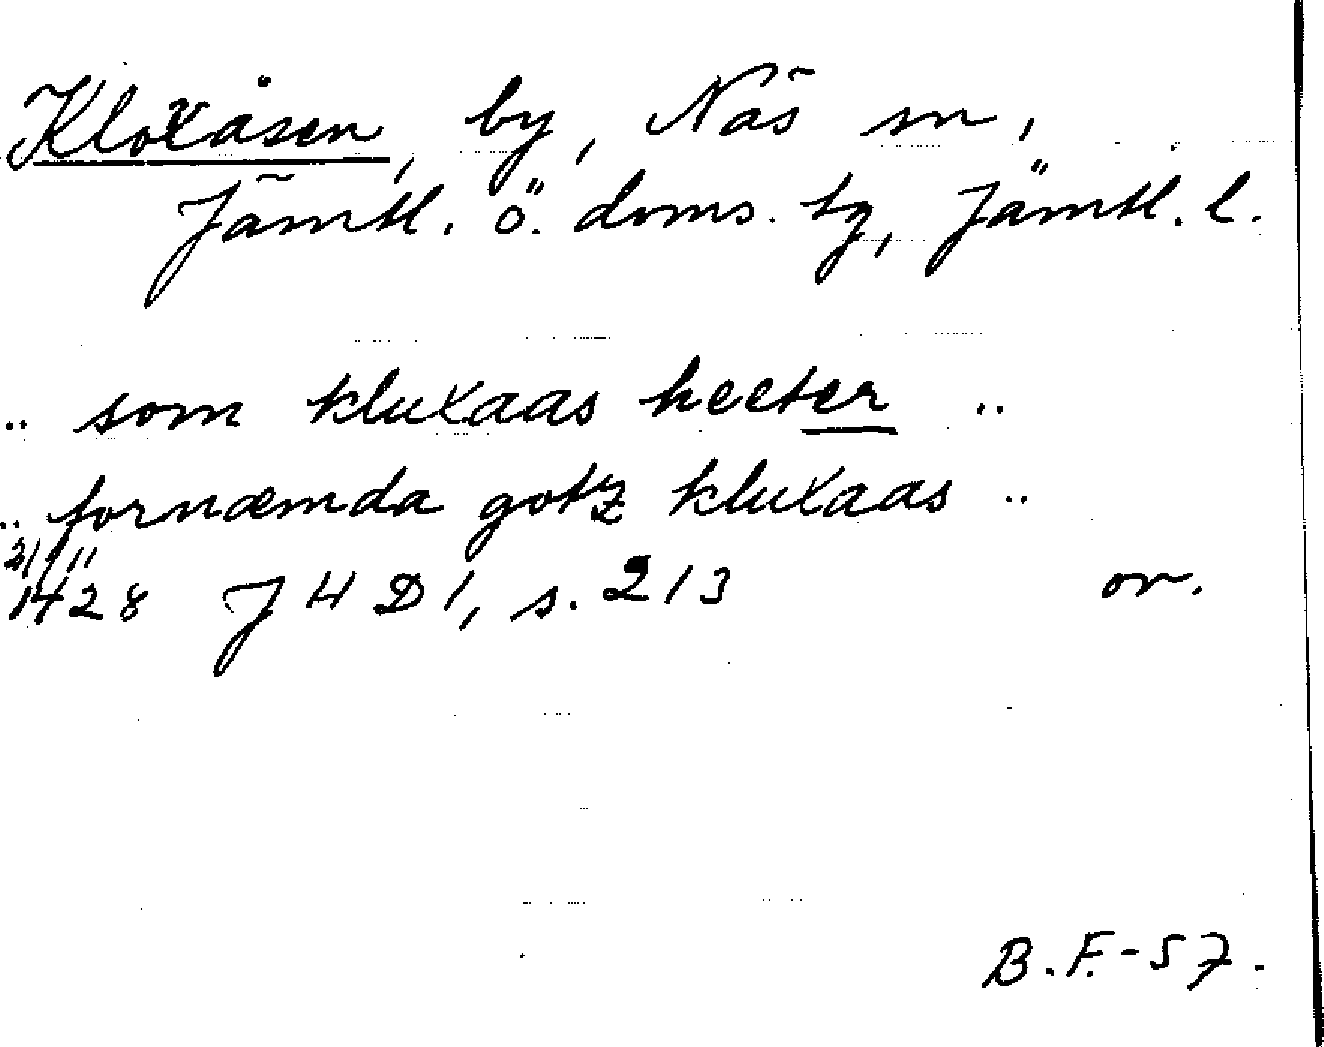 Kloxåsen, by, Näs sn,
Jämtl. ö. doms. tg, Jämtl. l.
.. som kluxaas heeter ..
.. fornæmda gotz kluxaas ..
21/11
1428 JHD 1, s. 213 or.
B.F.-57.